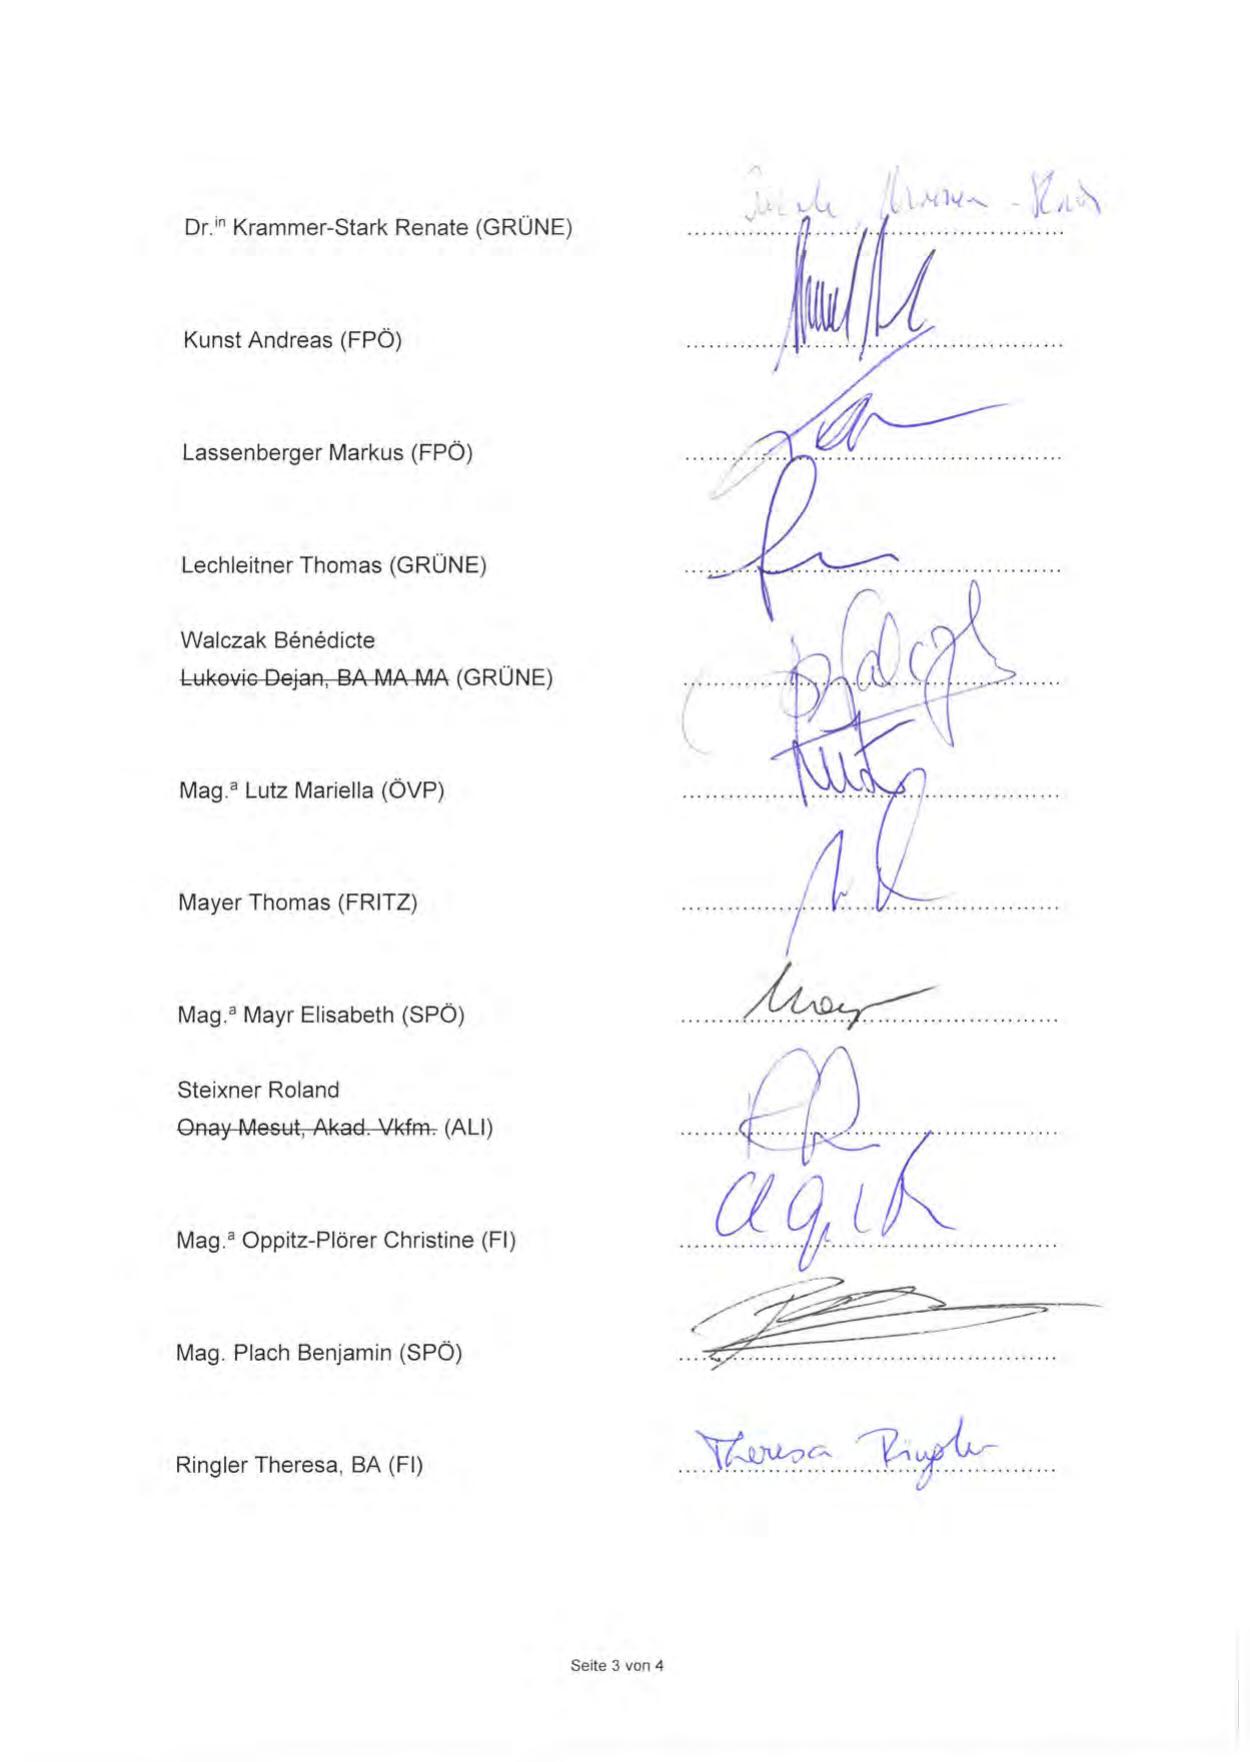 Dr.in Krammer-Stark Renate (GRÜNE)
Kunst Andreas (FPÖ)
Lassenberger Markus (FPÖ)
Lechleitner Thomas (GRÜNE)
Walczak Bénédicte
Lukovic Dejan, BA MA MA (GRÜNE)
Mag.a Lutz Mariella (ÖVP)
Mayer Thomas (FRITZ)
Mag.a Mayr Elisabeth (SPÖ)
Mayr
Steixner Roland
Onay Mesut, Akad. Vkfm. (ALI)
Mag.a Oppitz-Plörer Christine (FI)
Mag. Plach Benjamin (SPÖ)
Ringler Theresa, BA (FI) Theresa Ringler
Seite 3 von 4